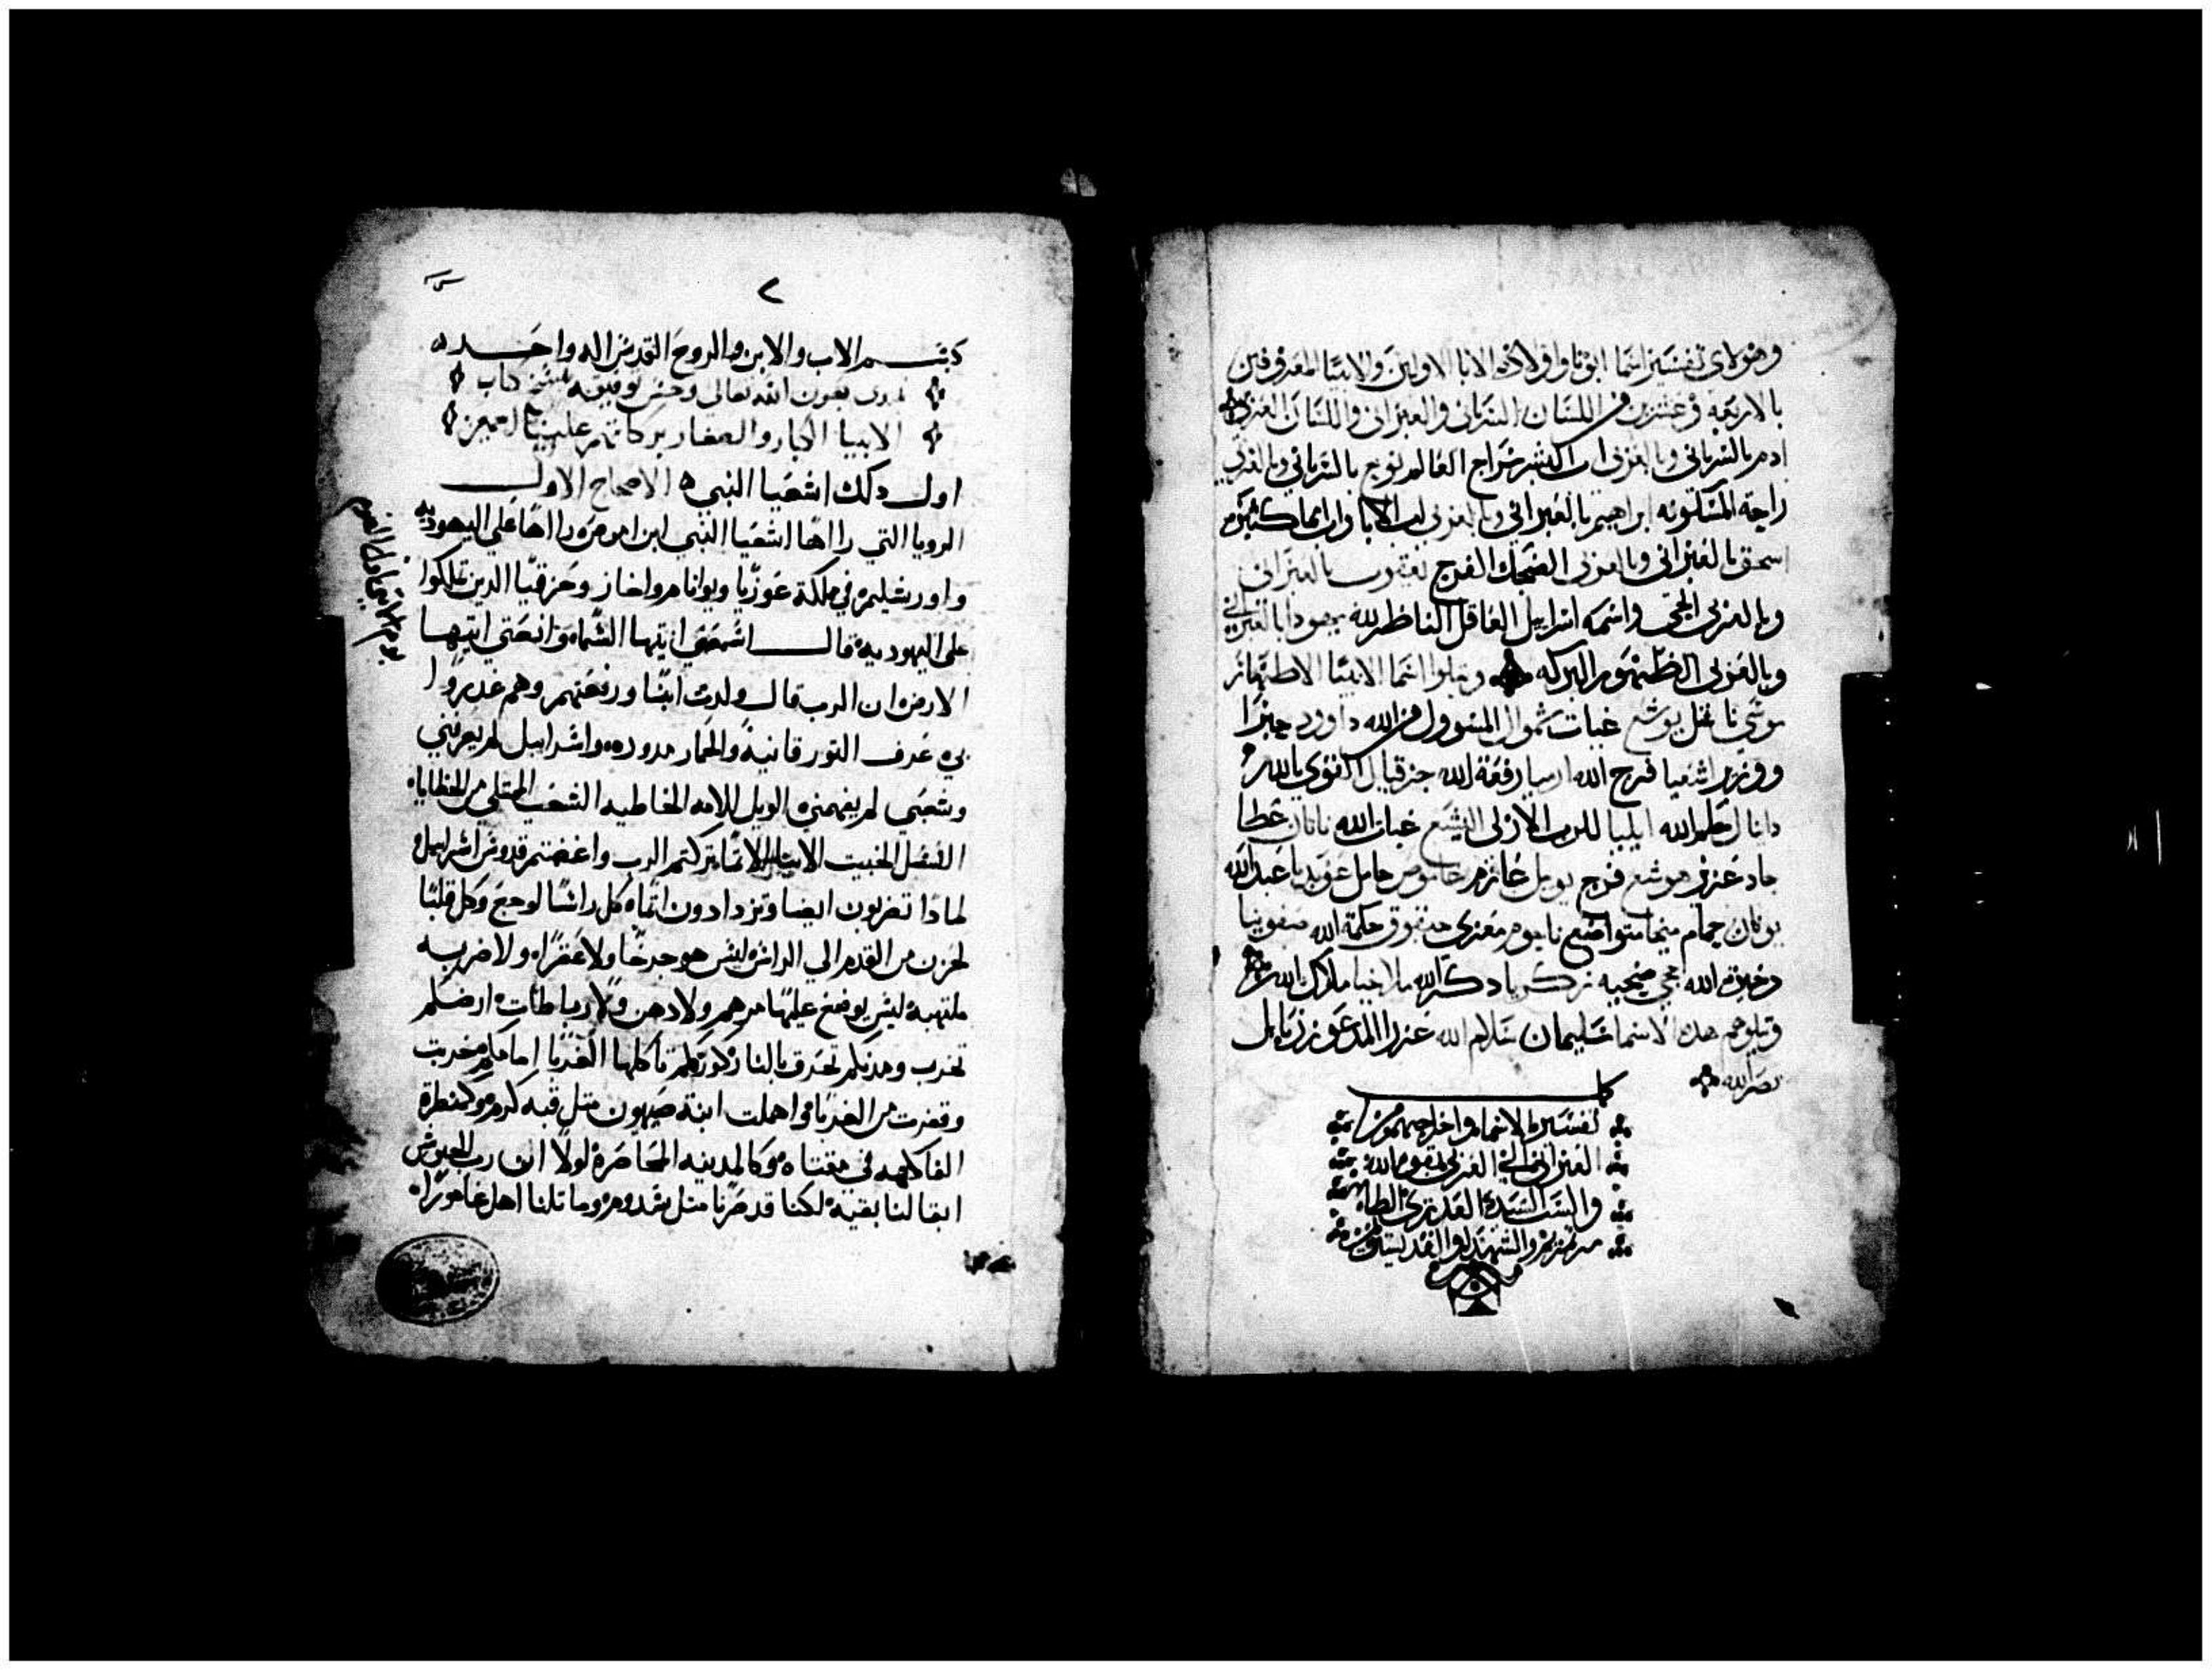 وهولاى تفسير اسما ابونا واولاده الابا الاولين والانبيا المعروفين
بالاربعه وعشرين في اللسان السرياني والعبراني واللسان العربي
ادم بالسرياني وبالعربى اب البشر سراج العالم نوح بالسرياني وبالعربي
راحة المسكونه ابراهيم بالعبراني وبالعربى اب الابا
اسحق بالعبراني وبالعربى الضحك الفرح يعقوب بالعبراني
وبالعربى واسمه اسراييل العاقل الناظر لله يهودا بالعبراني
وبالعربى البركه ويتلوا اسما الانبيا الاطهار
موسي يوشع غيات شموال المسوول من الله داوود
اشعيا فرح الله ارميا رفعة الله حزقيال القوي بالله
دانيال حكم الله ايليا للرب الازلى اليشع غيات الله ناتان عطا
جاد عزى هوشع فرح يويل عازم عاموص حامل عوبديا عبد الله
يونان حمام ميخا متواضع ناحوم معزى حبقوق حكمة الله صفونيا
دخيرة الله حجي ضحيه زكريا دكر الله ملاخيا ملاك الله
ويتلوهم هده الاسما سليمان سلام الله عزرا المدعو زربابل
نصر الله
كمل
تفسير الاسما واخراجهم من
العبراني الي العربي بقوة الله
والست السيدة العدرى الطاهره
مرتمريم والشهدا والقديسين
٢
بسم الاب والابن والروح القدس اله واحد
نبدى بعون الله تعالى وحسن توفيقه بنسخ كتاب
الانبيا الكبار والصغار بركاتهم علينا امين
اول دلك اشعيا النبي الاصحاح الاول
الرويا التي رااها اشعيا النبي ابن اموص رااها على اليهوديه
واورشليم في مملكة عوزيا ويواتام واحاز وحزقيا الدين تملكوا
على اليهوديه قال اسمعي ايتها السماء وانصتي ايتها
الارض ان الرب قال ولدت ابنا ورفعتهم وهم غدروا
بي عرف التور قانيه والحمار مدوده واسراييل لم يعرفني
وشعبي لم يفهمني الويل للامه الخاطيه الشعب الممتلي من الخطايا
النسل الخبيت الابنا الاتما تركتم الرب واغضبتم قدوس اسراييل
لمادا تضربون ايضا وتزدادون اتما كل راس لوجع وكل قلب
لحزن من القدم الي الراس ليس هو جرحا ولا عقرا ولا ضربه
ملتهبه ليس يوضع عليها مرهم ولا دهن ولا رباطات ارضكم
تخرب ومدنكم تحرق بالنار كورتكم تاكلها الغربا امامكم وخربت
وقفرت من الغربا واهملت ابنة صهيون متل قبه كرم وكمنطرة
الفاكهه في مقتاه وكالمدينه المحاصره لولا ان رب الجيوش
ابقا لنا بقيه لكنا قد صرنا متل سدوم وماتلنا اهل غامورا